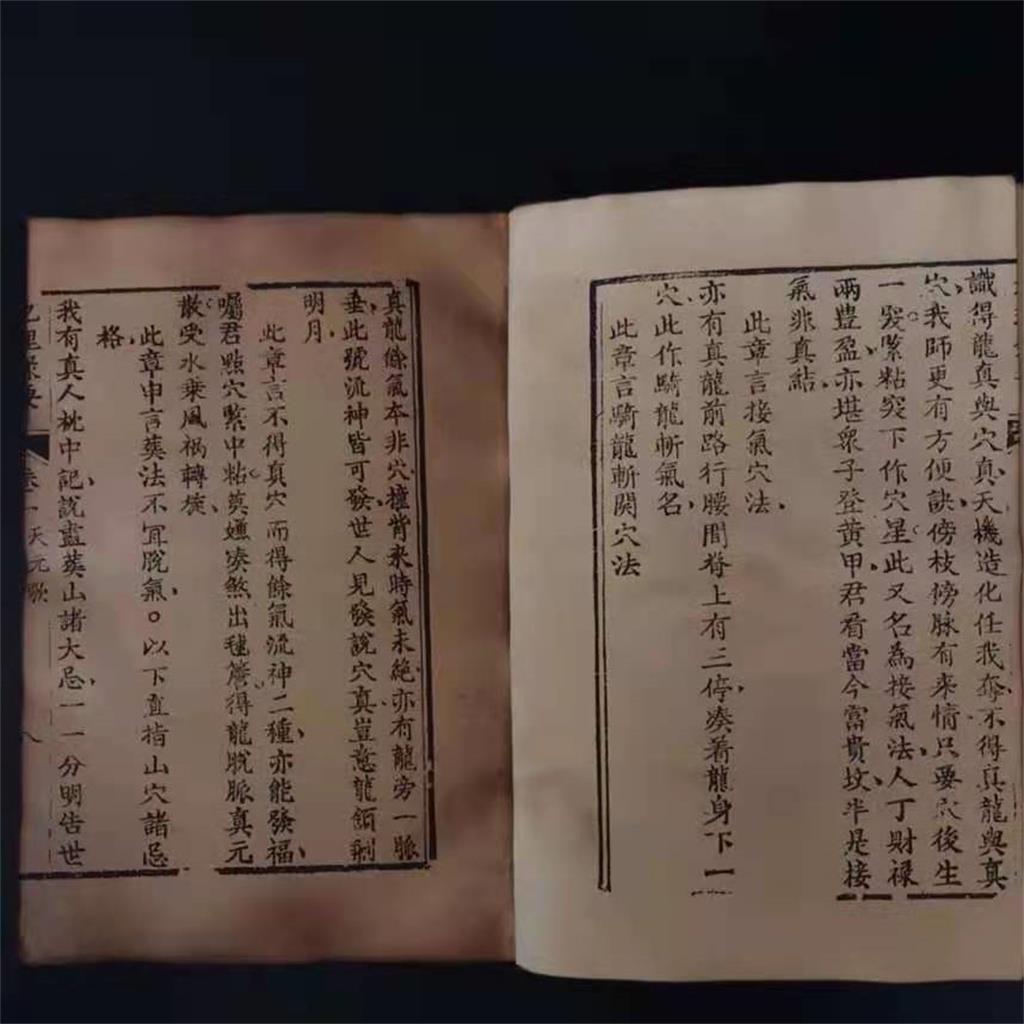 識得龍真與穴真天機造化任我奪不得真龍與真
穴我師更有方便訣傍枝傍脉有来情只要穴後生
一突緊粘突下作穴星此又名為接氣法人丁財禄
兩豊盈亦堪衆子登黄甲君看當今富貴坟半是接
氣非真結
此章言接氣穴法
亦有真龍前路行腰間脊上有三停凑着龍身下一
穴此作騎龍斬氣名
此章言騎龍斬関穴法
真龍餘氣本非穴撞背来時氣未絶亦有龍旁一脈
垂此號流神皆可發世人見發說穴真豈意龍餘剩
明月
此章言不得真穴而得餘氣流神二種亦能發福
囑君㸃穴緊中粘莫嫌凑煞出毬簷得龍脱脈真元
散受水乗風禍轉旋
此章申言葬法不冝脱氣○以下直指山穴諸忌
格
我有真人枕中記說盡葬山諸大忌一一分明告世
天元歌
八